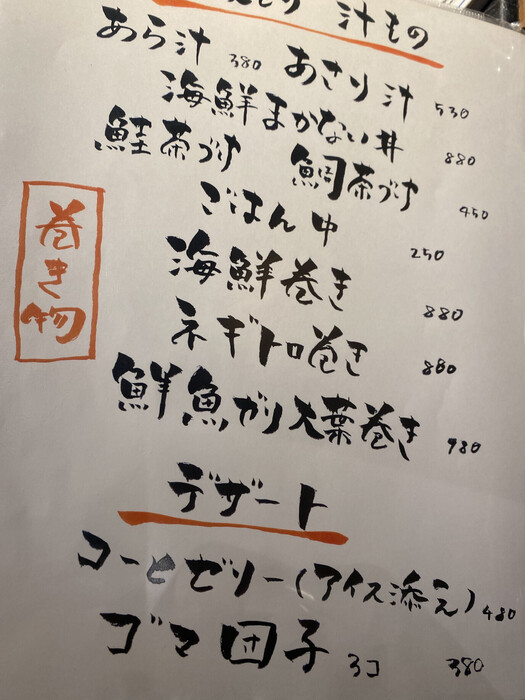 汁もの
あら汁 380 あさり汁 530
海鮮まかない丼 880
鮭茶づけ 鯛茶づけ 450
ごはん 中 250
巻き物
海鮮巻き 880
ネギトロ巻き 880
鮮魚ガリ大葉巻き 980
デザート
コーヒーゼリー(アイス添え) 480
ゴマ団子 3コ 380